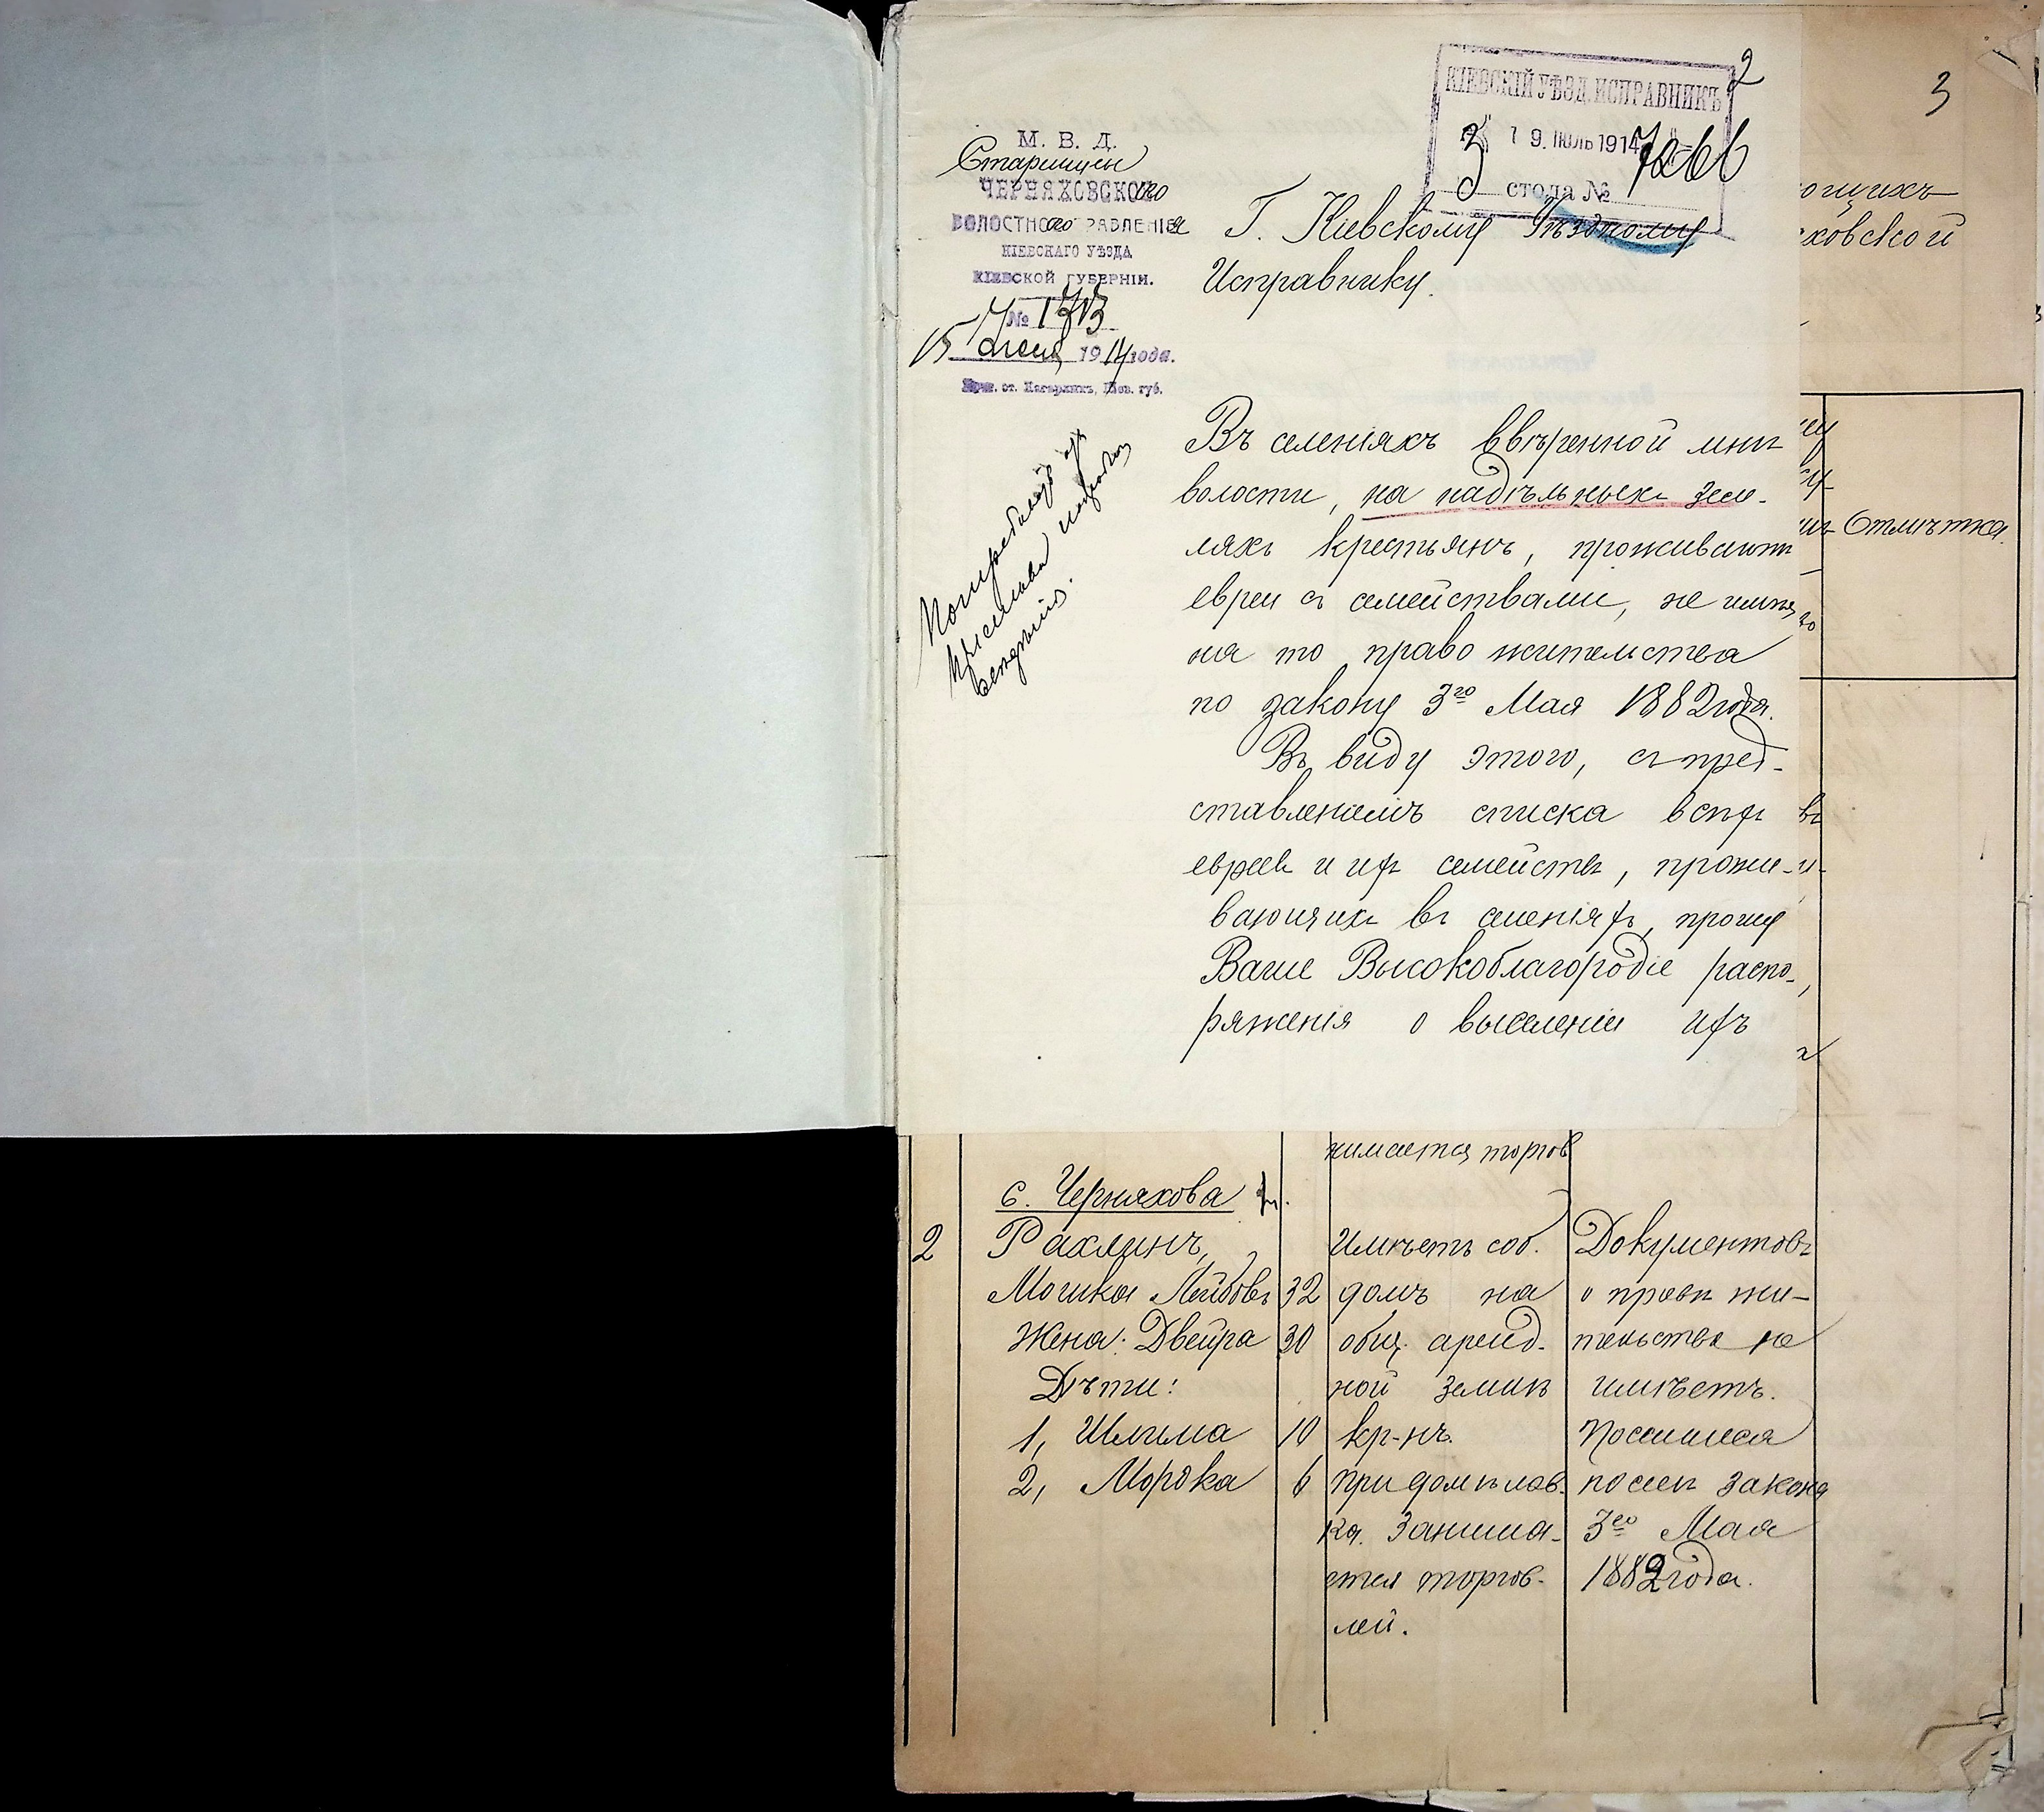 2
3
КІЕВСКІЙ УѢЗД. ИСПРАВНИКЪ
19. ІЮЛЬ 1914
3 стола №
М. В. Д.
Старшины
ЧЕРНЯХОВСКОго
ВОЛОСТНОго ПРАВЛЕНІЯ
КІЕВСКАГО УѢЗДА
КІЕВСКОЙ ГУБЕРНІИ.
№
15 1914 года.
ст. Кагарлыкъ, Кіев. губ.
Г. Кіевскому Уѣздному
Исправнику.
Въ селеніяхъ ввѣренной мнѣ
волости, на надѣльныхъ зем-
ляхъ крестьянъ, проживаютъ
евреи съ семействами, не имѣя
на то право жительства
по закону 3го Мая 1882 года.
Въ виду этого, съ пред-
ставленіемъ списка всѣхъ
евреевъ и ихъ семействъ, прожи-
вающихъ въ селеніяхъ, прошу
Ваше Высокоблагородіе распо-
ряженія о выселеніи ихъ
ющихъ
ховской
Отмѣтка.
нимается торгов
с. Черняхова
2 Рахлинъ, Имѣетъ соб. Документовъ
Мошка Лейбовъ 32 домъ на о правѣ жи-
Жена: Двейра 30 общ. аренд- тельства не
Дѣти: ной землѣ имѣетъ.
1, Шлима 10 кр-нъ. Поселился
2, Мордка 6 При домѣ лав- послѣ закона
ка. Занима- 3го Мая
ется торгов- 1882 года.
лей.